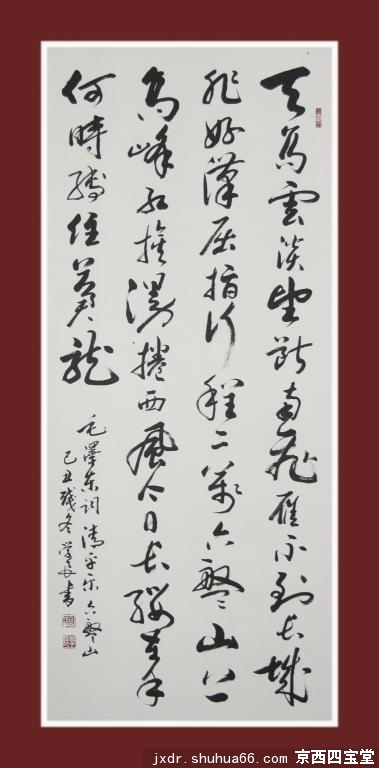 天高雲淡望斷南飛雁不到長城
非好漢屈指行程二萬六盤山上
高峰紅旗漫捲西風今日長纓在手
何時縛住蒼龍
毛澤東詞清平樂六盤山
己丑殘冬書
jxdr.shuhua66.com 京西四宝堂